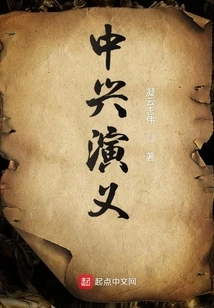 中兴演义
凝云志伟
著
起点中文网